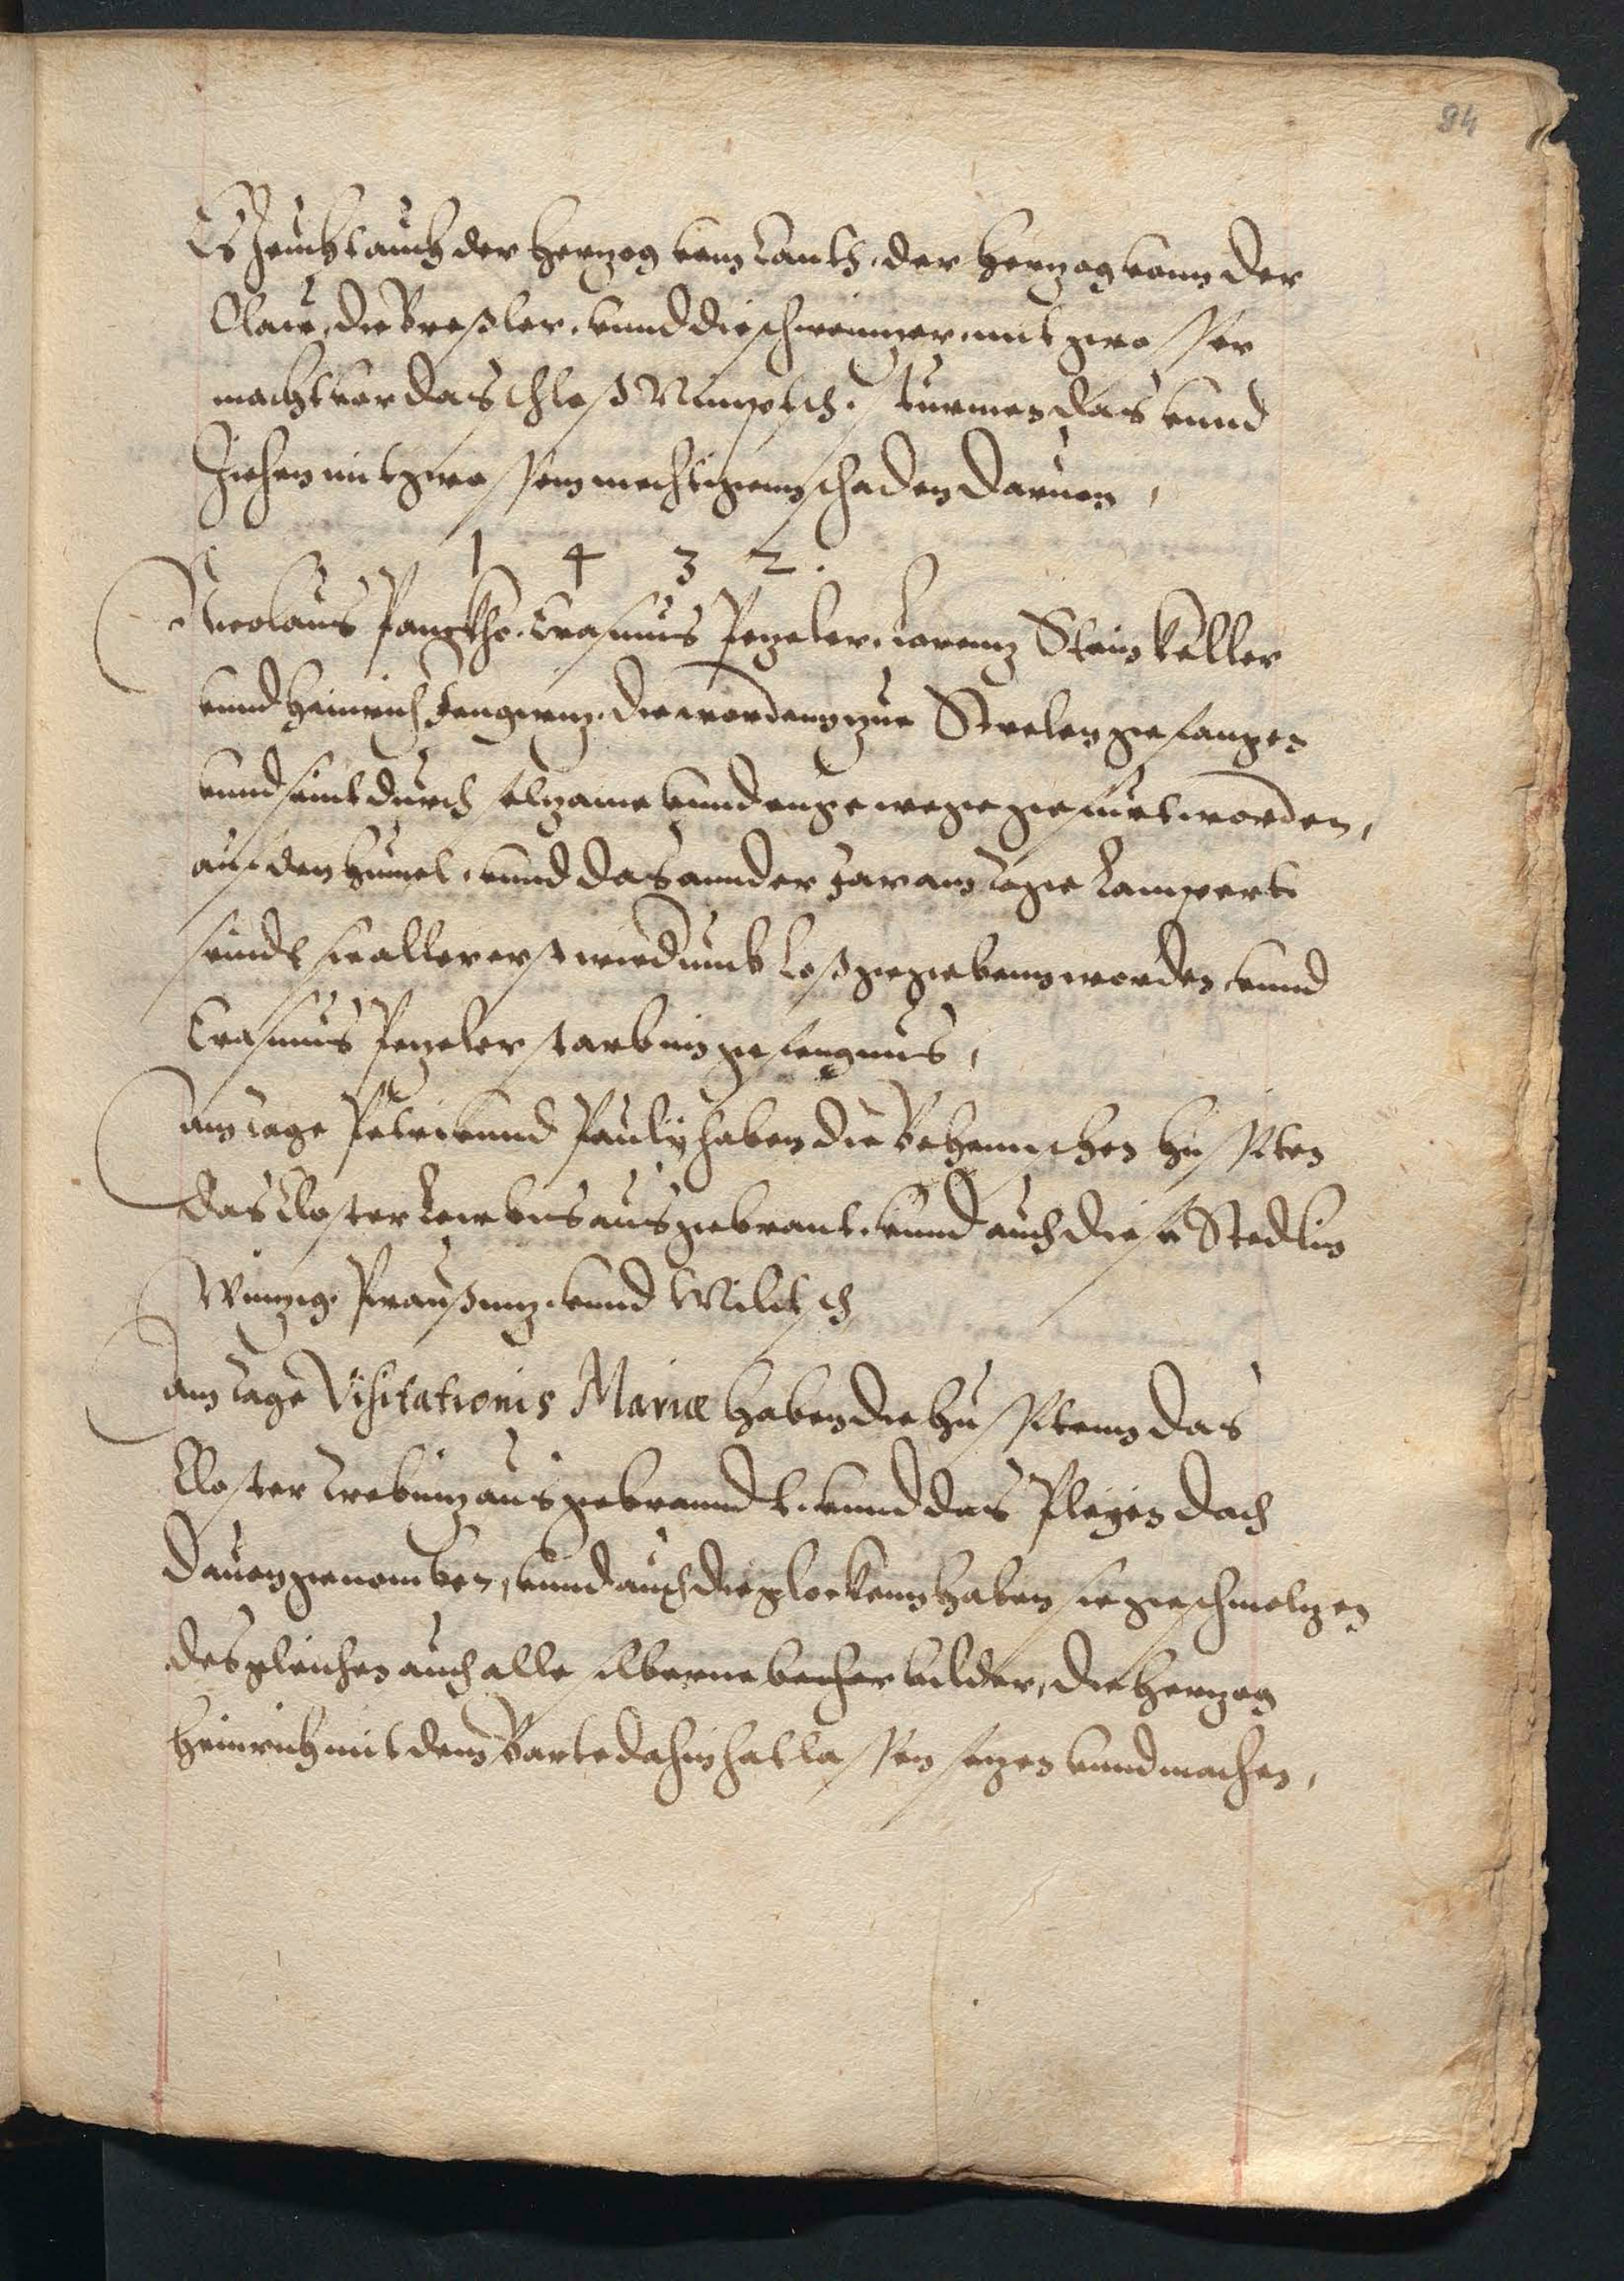 94
Es Zeucht auch der Herzog vom Canth, der Herzog vonn der
Olaw, die Breßler, vnnd die schweinizer, mit grosser
macht vor das schloß Nimptsch, sturmen das vnnd
Ziehen mit grossem mechtigem schaden daruon,
1 4 3 2.
Nicolaus Erasmus Pezeler, Lorenz Stein Keller
vnnd Heinrich die wordenn zue Strelen gefangen
vnnd seint durch selzame vnnd enge wege gefürt worden,
auf den Humel, vnnd das annder Jar am tage Lamperti
seindt sie allererst wiedumb loßgegebenn worden, vnnd
Erasmus Pezeler starb im gefengnus,
am tage Petri vnnd Pauli haben die Behemischen Hussiten
das Closter Leubus ausgebrant, vnnd auch diese Stedlin
Winzig, Praußniz, vnnd Militsch
am tage Visitationis Mariæ haben die Hussitenn das
Closter Trebniz ausgebranndt, vnnd das Pleyen dach
dauon genomben, vnnd auch die glockenn haben sie geschmelzen
desgleichen auch alle silberne becher bilder, die Herzog
Heinrich mit dem Barte dahin hat lassen sezen vnnd machen,